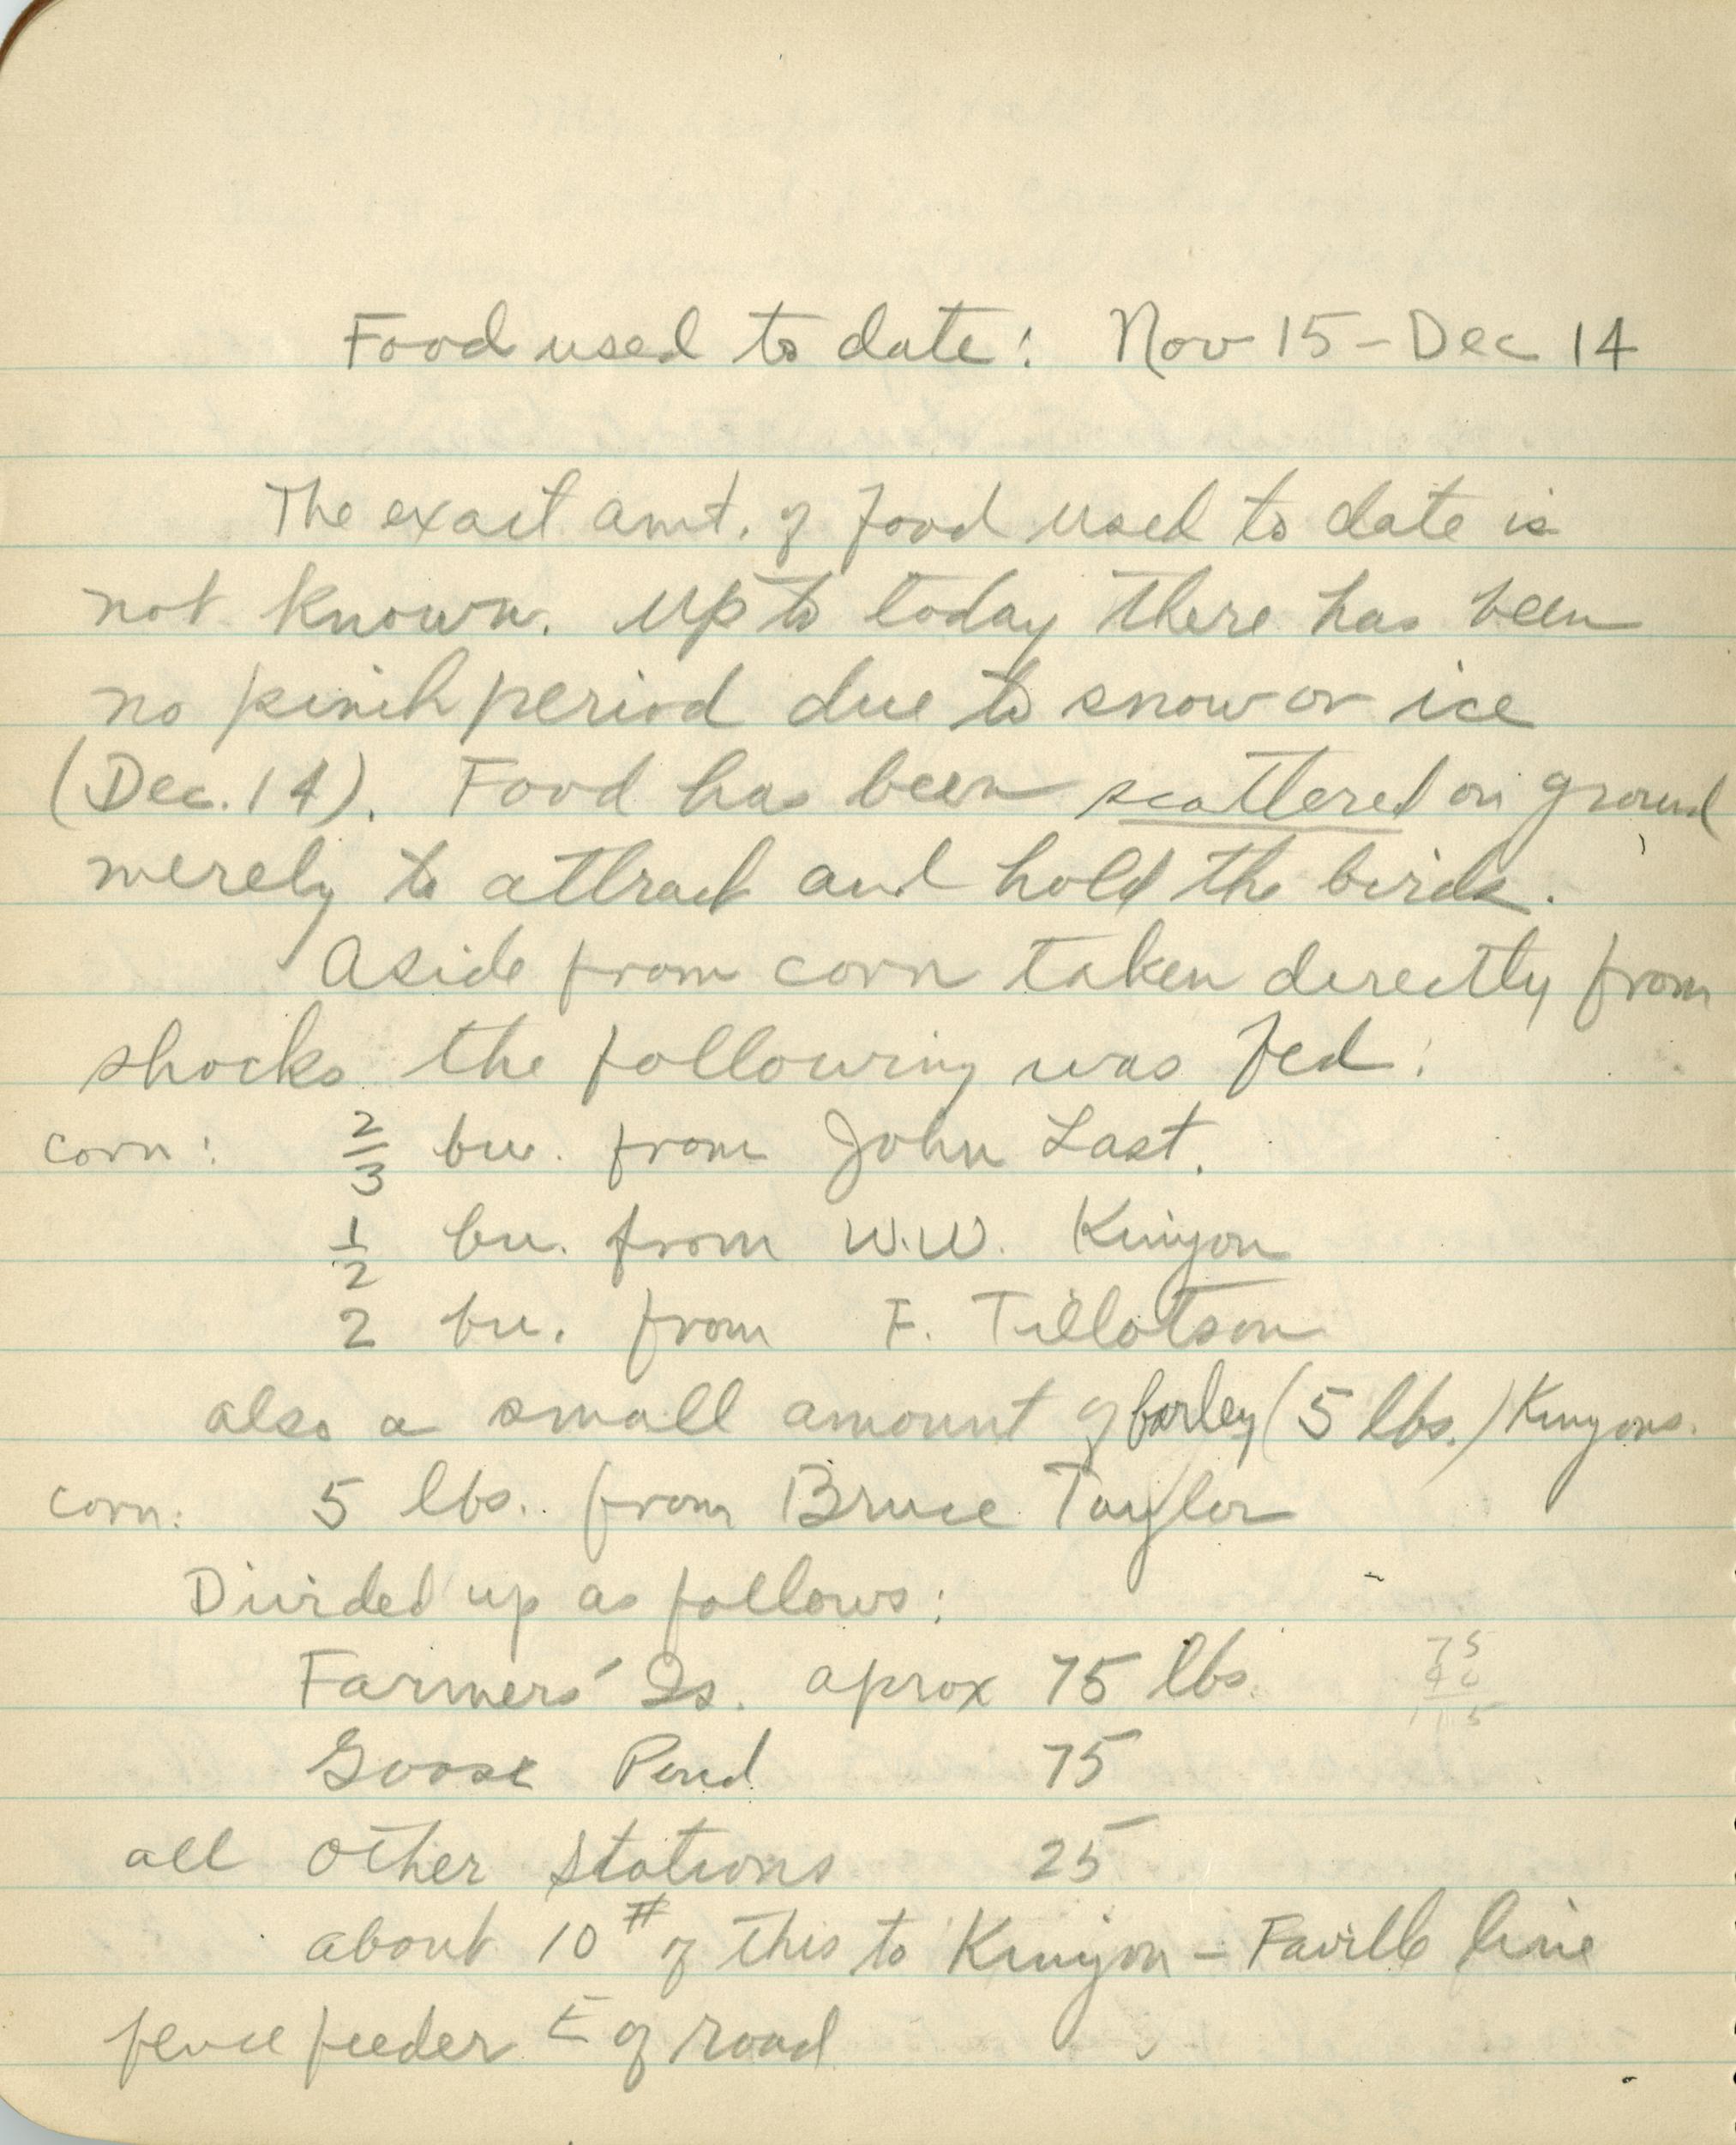 Food used to date: Nov 15 - Dec 14
The exact amt. of food used to date is
not known. Up to today there has been
no pinch period due to snow or ice
(Dec. 14). Food has been scattered on ground
merely to attract and hold the birds.
Aside from corn taken directly from
shocks the following was fed:
corn: 2/3 bu. from John Last.
1/2 bu. from W.W. Kinyon
2 bu. from F. Tillotson
also a small amount of barley (5 lbs.) Kinyons.
corn: 5 lbs. from Bruce Taylor
Divided up as follows:
Farmers' Is. aprox 75 lbs.
75
40
115
Goose Pond 75
all other stations 25
about 10 # of this to Kinyon - Faville line
fence feeder E of road